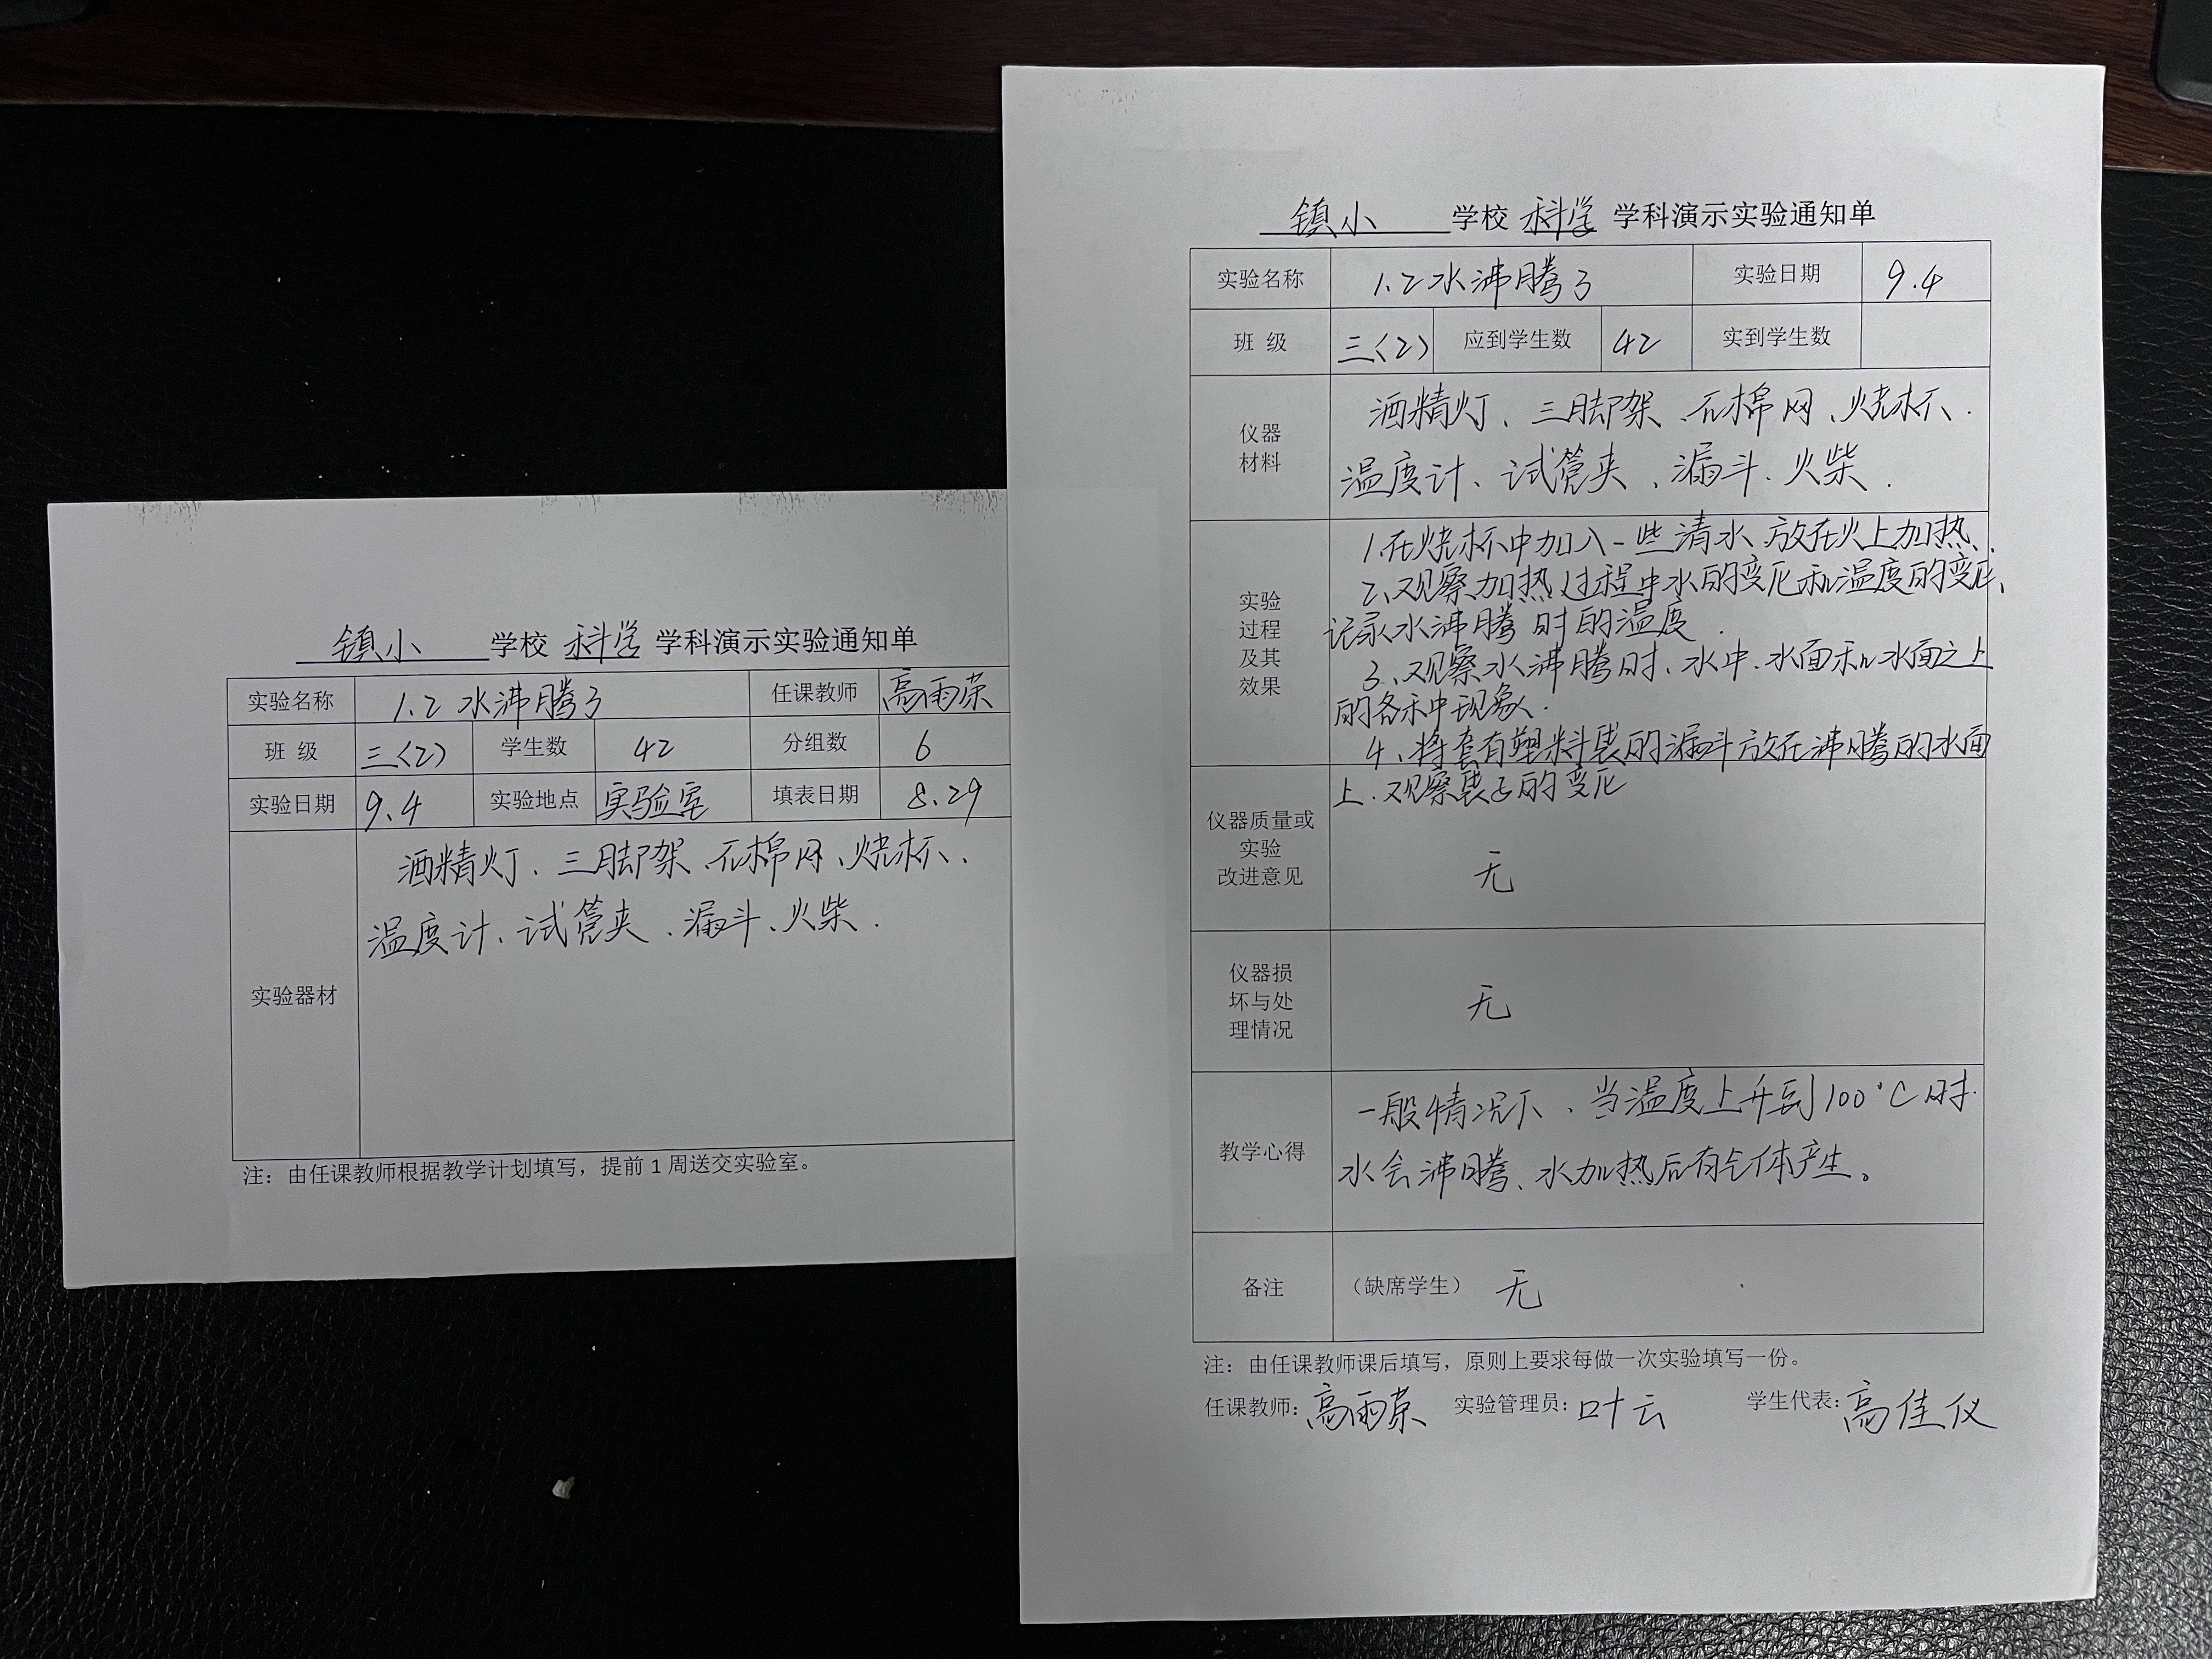 镇小 学校 科学 学科演示实验通知单
实验名称 1.2 水沸腾了 任课教师 高雨荣
班 级 三(2) 学生数 42 分组数 6
实验日期 9.4 实验地点 实验室 填表日期 8.29
实验器材
酒精灯、三脚架、石棉网、烧杯、
温度计、试管夹、漏斗、火柴.
注：由任课教师根据教学计划填写，提前 1 周送交实验室。
镇小 学校 科学 学科演示实验通知单
实验名称 1.2 水沸腾了 实验日期 9.4
班 级 三(2) 应到学生数 42 实到学生数
仪器
材料
酒精灯、三脚架、石棉网、烧杯、
温度计、试管夹、漏斗、火柴.
实验
过程
及其
效果
1.在烧杯中加入一些清水、放在火上加热、
2、观察加热过程中水的变化和温度的变化、
记录水沸腾时的温度.
3、观察水沸腾时、水中、水面和水面之上
的各种现象.
4、将套有塑料袋的漏斗放在沸腾的水面
上、观察袋子的变化
仪器质量或
实验
改进意见
无
仪器损
坏与处
理情况
无
教学心得
一般情况下、当温度上升到100°C时.
水会沸腾、水加热后有气体产生。
备注 （缺席学生） 无
注：由任课教师课后填写，原则上要求每做一次实验填写一份。
任课教师: 高雨荣 实验管理员: 叶云 学生代表: 高佳仪